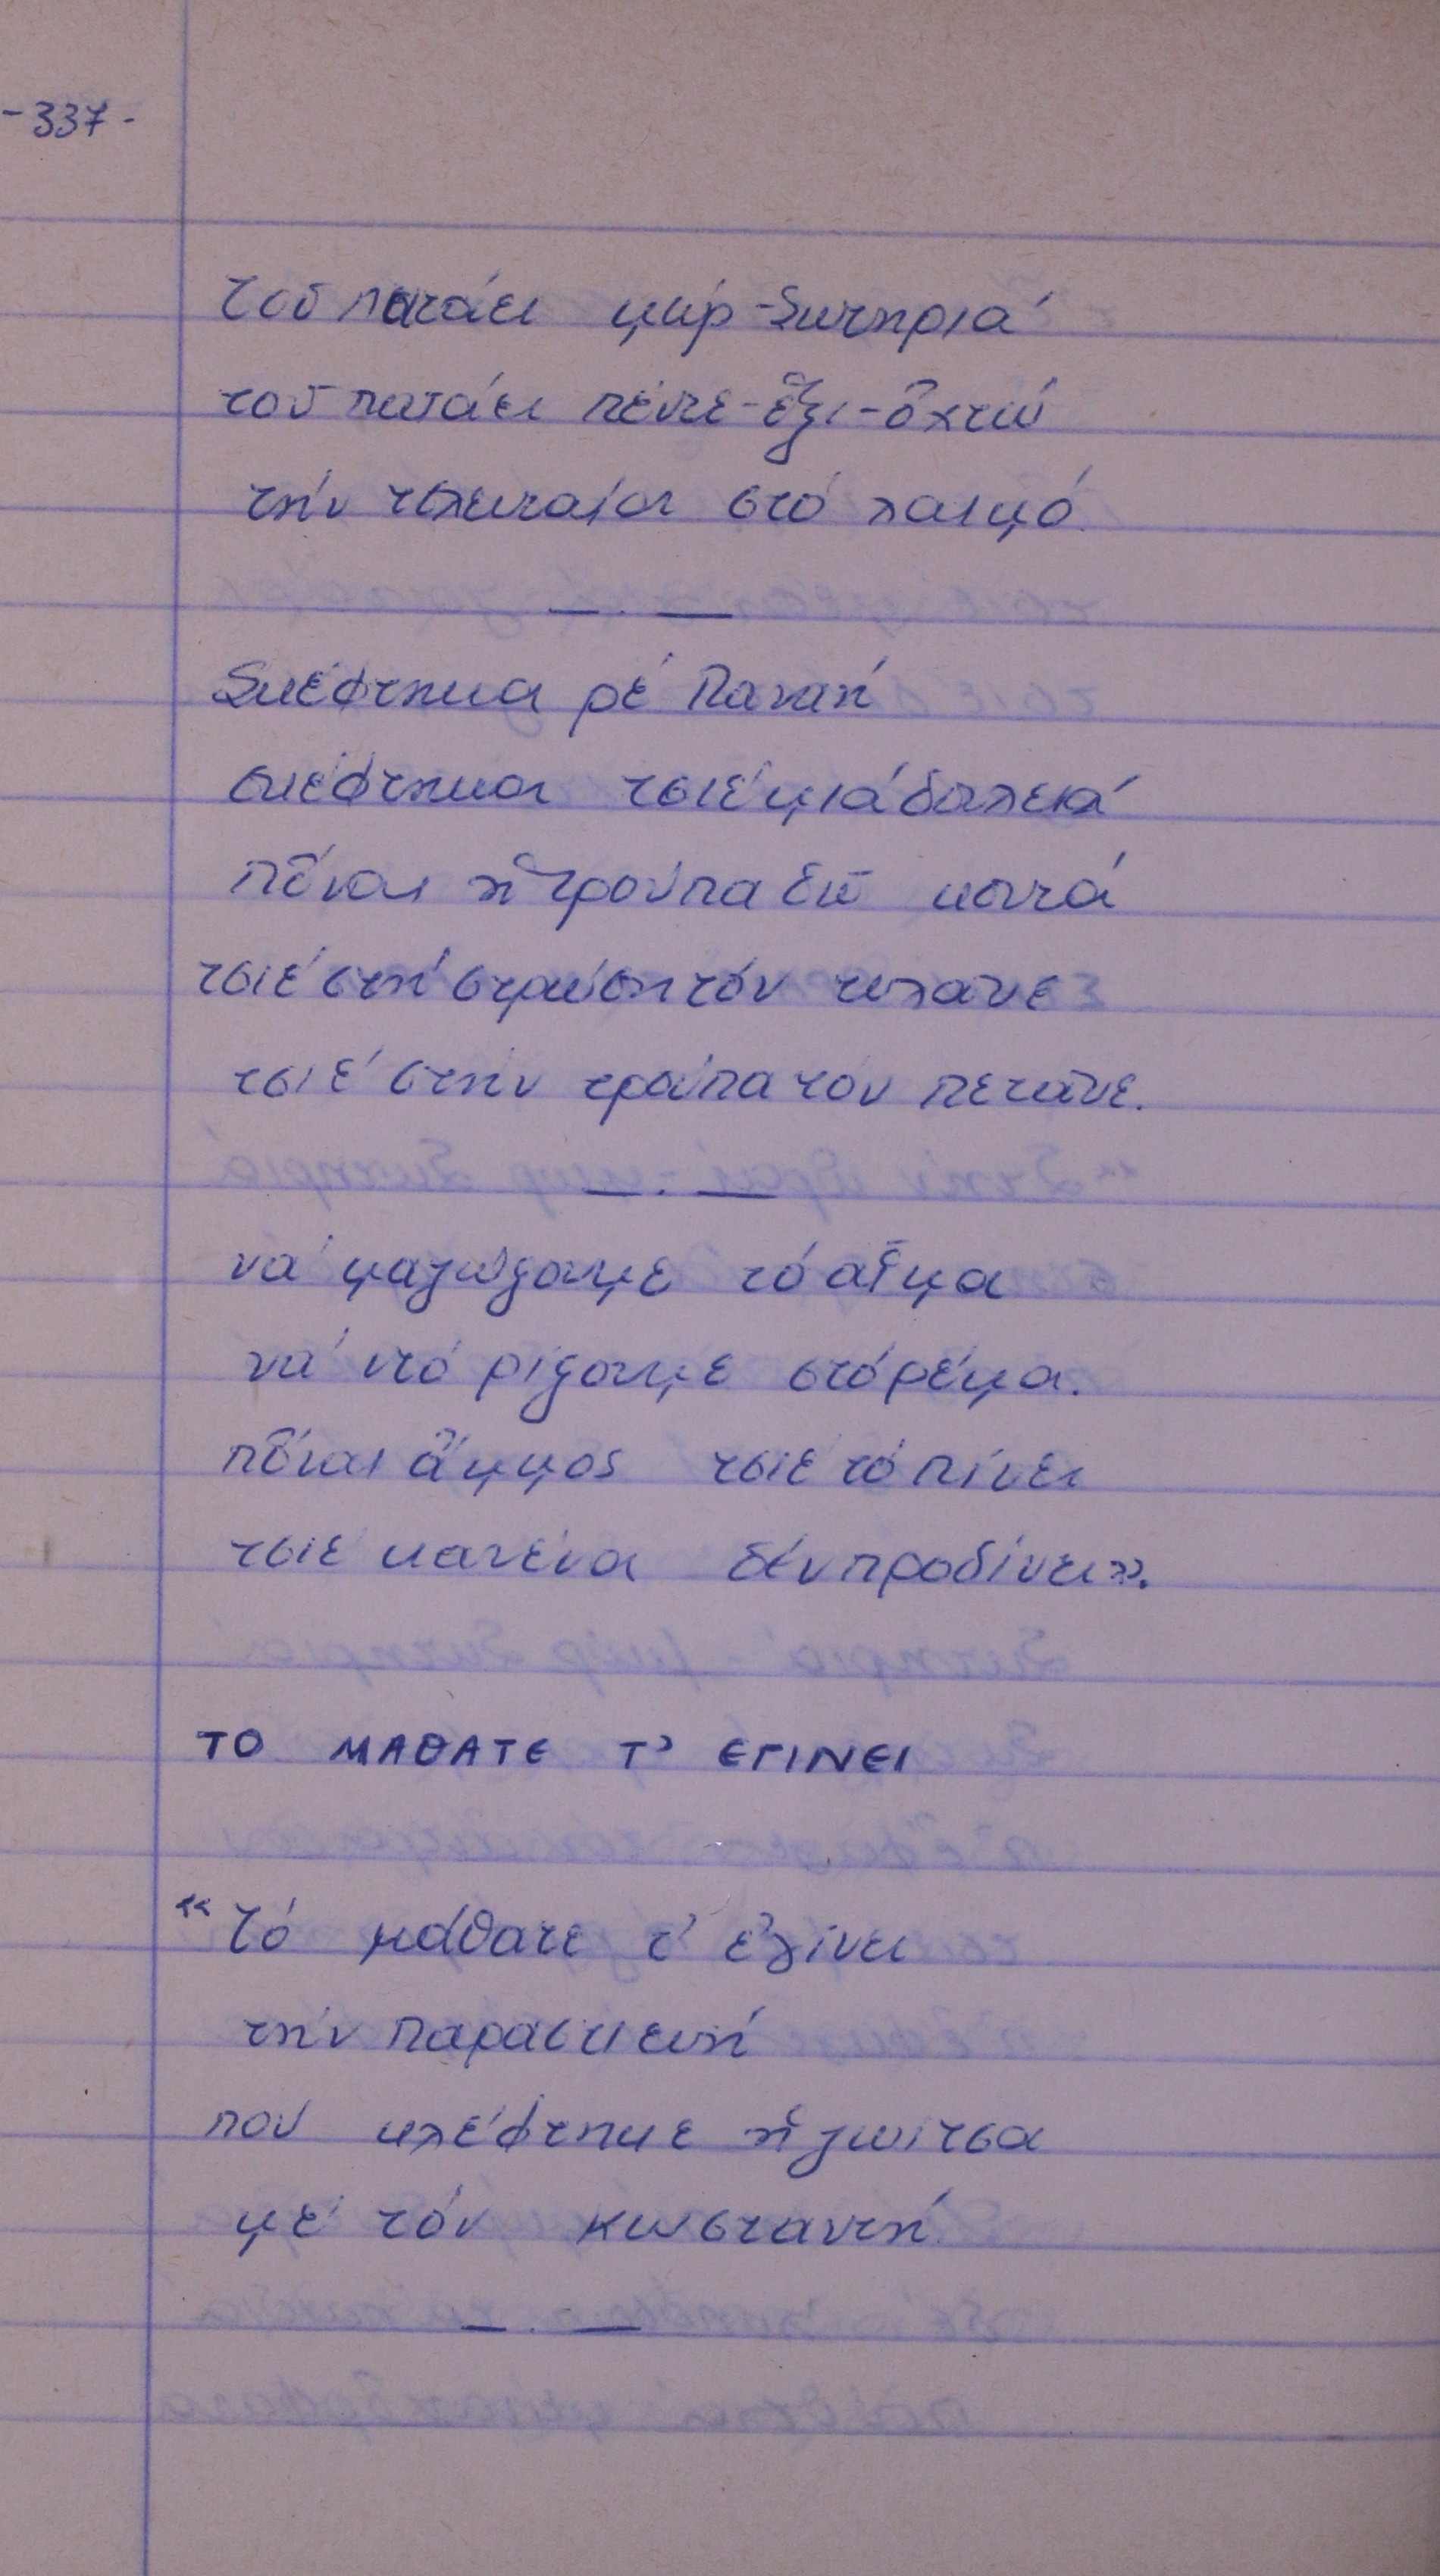 -337-
τοῦ πατάει μωρ-Σωτηριά
τοῦ πατάει πέντε-ἕξι-ὀχτώ
τήν τελευταία στό λαιμό.
Σκέφτηκα ρέ Παναή
σκέφτηκα τσιέ μιά δουλειά
πὄναι ἡ τρούπα δῶ κοντά
τσιέ στή στρώση τόν τυλᾶνε
τσιέ στήν τρούπα τόν πετᾶνε.
νά μαζώξουμε τό αἷμα
νά ντό ρίξουμε στό ρέμα.
πὄναι ἄμμος τσιέ τό πίνει
τσιέ κανένα δέν προδίνει».
ΤΟ ΜΑΘΑΤΕ Τ' ΕΓΙΝΕΙ
«Τό μάθατε τ' ἐγίνει
τήν Παρασκευή
πού κλέφτηκε ἡ γωίτσα
μέ τόν Κωσταντή.